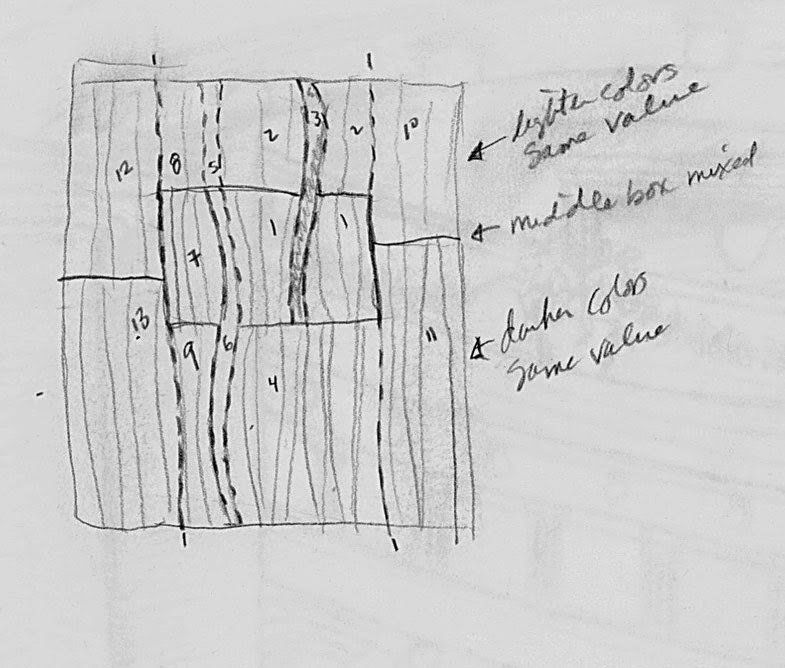 3
10
2
2
12
8
5
lighter colors
same value
1
1
7
middle box mixed
13
9
6
4
11
darker colors
same value